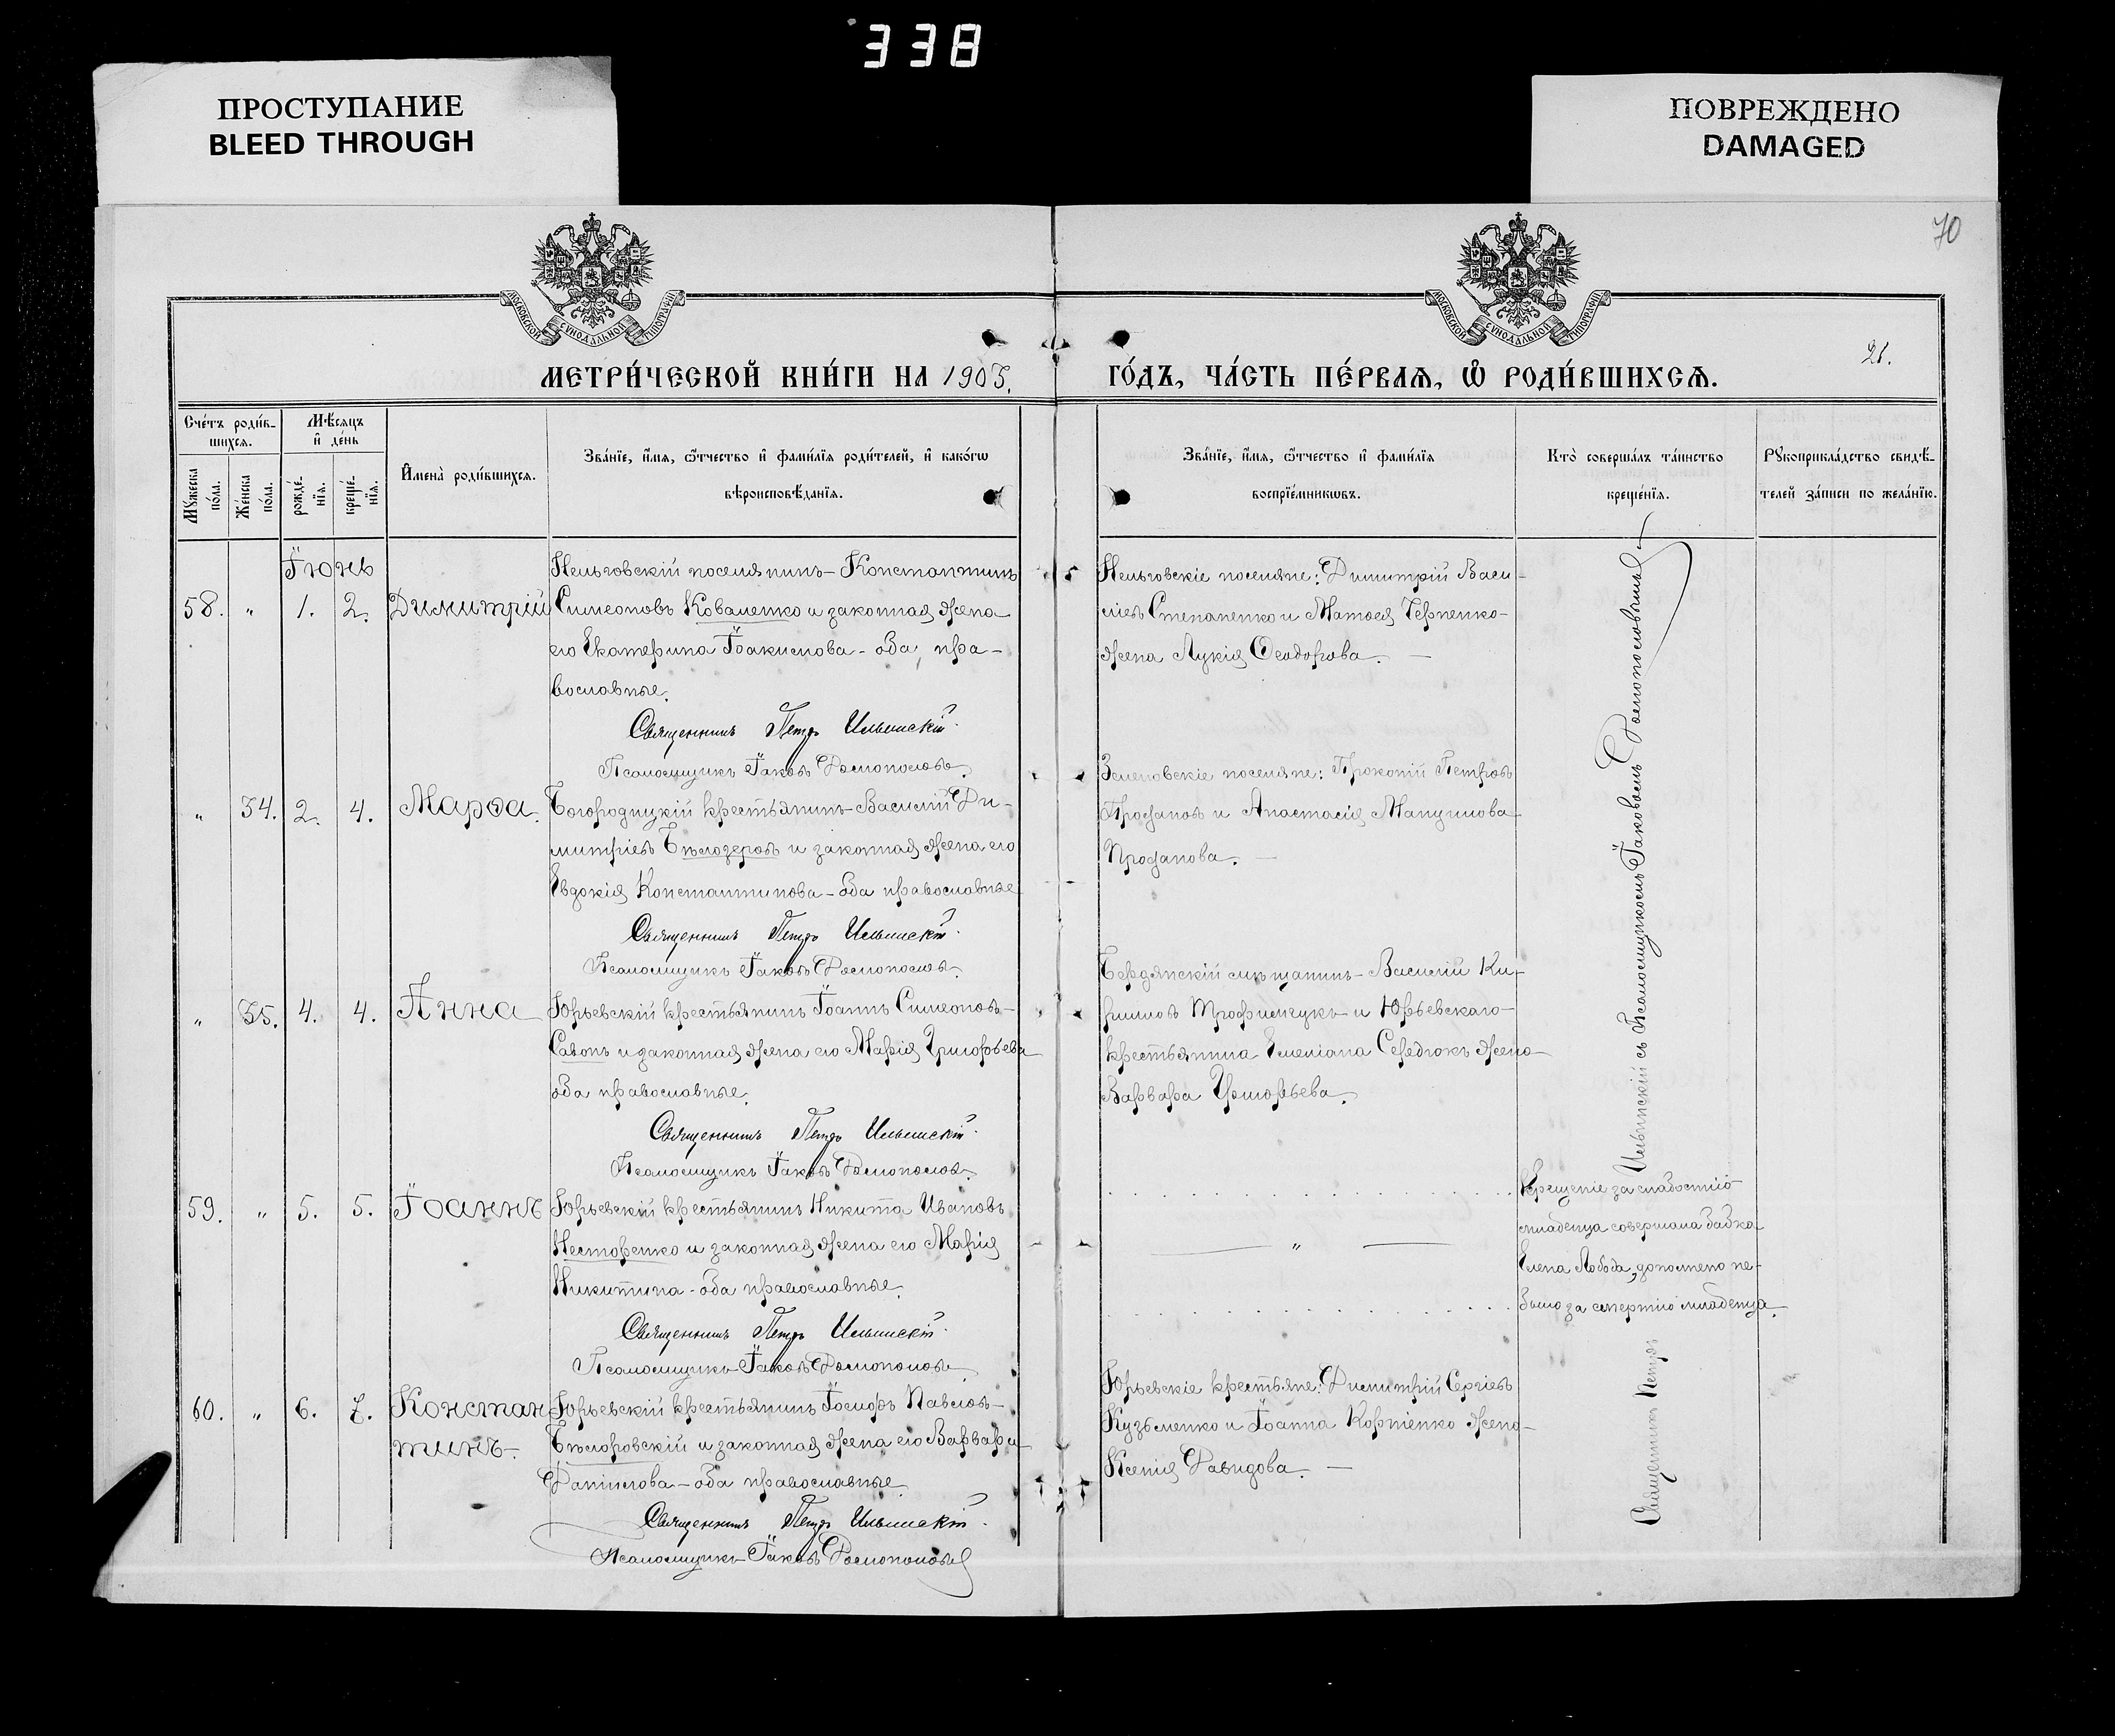 338
ПРОСТУПАНИЕ
BLEED THROUGH
ПОВРЕЖДЕНО
DAMAGED
70
МОСКОВСКОЙ СѴНОДАЛЬНОЙ ТИПОГРАФІИ
МОСКОВСКОЙ СѴНОДАЛЬНОЙ ТИПОГРАФІИ
МЕТРИ́ЧЕСКОЙ КНИ́ГИ НА 1905.
ГО́ДЪ, ЧА́СТЬ ПЕ́РВАѦ, Ѡ҆ РОДИ́ВШИХСѦ.
26.
Сче́тъ роди́в-
шихсѧ.
Мѣ́сѧцъ
и҆ де́нь
Мꙋ́жеска по́ла.
Же́нска по́ла.
рожде́-нїѧ.
креще́-нїѧ.
И҆мена̀ роди́вшихсѧ.
Зва́нїе, и҆́мѧ, ѻ҆́тчество и҆ фами́лїѧ роди́телей, и҆ како́гѡ
вѣроисповѣ́данїѧ.
Зва́нїе, и҆́мѧ, ѻ҆́тчество и҆ фами́лїѧ
воспрїе́мникѡвъ.
Кто̀ соверша́лъ та́инство
креще́нїѧ.
Рꙋкоприкла́дство свидѣ́-
телей за́писи по жела́нїю.
Іюнь
58. " 1. 2. Димитрій
Нельговскій поселянинъ Константинъ
Симеоновъ Коваленко и законная жена
его Екатерина Іоакимова - оба, пра-
вославные.
Священникъ Петръ Ильинскій.
Псаломщикъ Іаковъ
Нельговскіе поселяне: Димитрій Васи-
ліевъ Степаненко и Матѳея Черненко
жена Лукія Ѳеодорова. —
" 34. 2. 4. Марѳа.
Богородицкій крестьянинъ Василій Ди-
митріевъ Бѣлозеровъ и законная жена его
Евдокія Константинова - оба православные
Священникъ Петръ Ильинскій.
Псаломщикъ Іаковъ
Зеленовскіе поселяне: Прокопій Петровъ
Проданов и Анастасія Мануилова
Проданова. —
" 35. 4. 4. Анна
Юрьевскій крестьянинъ Іоаннъ Симеоновъ
Савонъ и законная жена его Марія Григорьева
оба православные.
Священникъ Петръ Ильинскій.
Псаломщикъ Іаковъ
Бердянскій мѣщанинъ Василій Ки-
рилловъ и Юрьевскаго
крестьянина Емеліана Середюкъ жена
Варвара Григорьева.
59. " 5. 5. Іоаннъ
Юрьевскій крестьянинъ Никита Ивановъ
Несторенко и законная жена его Марія
Никитина - оба православные.
Священникъ Петръ Ильинскій.
Псаломщикъ Іаковъ
Крещеніе за слабостію
младенца совершала бабка
Елена Лобода, дополнено не-
было за смертію младенца.
60. " 6. 7. Констан
тинъ.
Юрьевскій крестьянинъ Іосифъ Павловъ
и законная жена его Варвара
Даніилова - оба православные.
Священникъ Петръ Ильинскій.
Псаломщикъ Іаковъ
Юрьевскіе крестьяне: Димитрій Сергіевъ
Кузьменко и Іоанна Корніенко жена
Ксенія Давидова. —
Священникъ Петръ Ильинскій съ Псаломщикомъ Іаковомъ